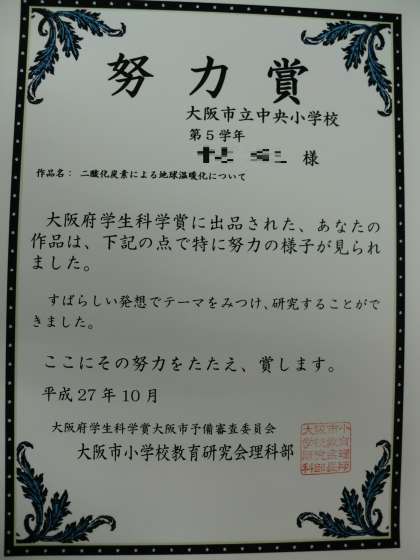 努力賞
大阪市立中央小学校
第5学年
様
作品名： 二酸化炭素による地球温暖化について
大阪府学生科学賞に出品された、あなたの
作品は、下記の点で特に努力の様子が見られ
ました。
すばらしい発想でテーマをみつけ、研究することがで
きました。
ここにその努力をたたえ、賞します。
平成27年10月
大阪府学生科学賞大阪市予備審査委員会
大阪市小学校教育研究会理科部
大阪市小
学校教育
研究会理
科部長印